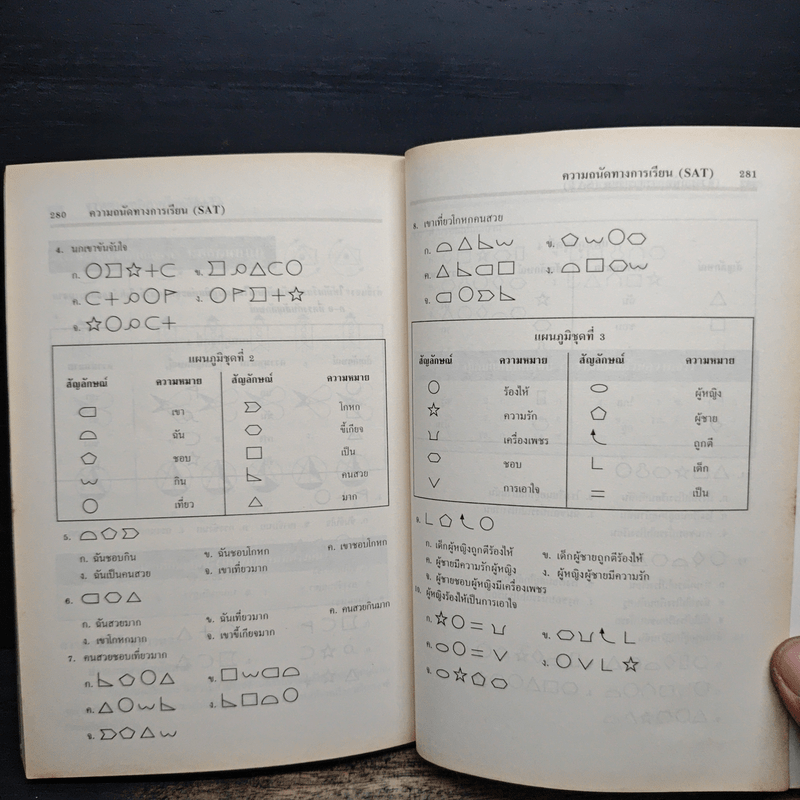 280 ความถนัดทางการเรียน (SAT)
4. นกเขาขันจับใจ
ก. ○ ☆ + ⊂ ข. △ ⊂ ○
ค. ⊂ + ○ ง. ○ + ☆
จ. ☆ ○ ⊂ +
แผนภูมิชุดที่ 2
สัญลักษณ์ ความหมาย สัญลักษณ์ ความหมาย
เขา โกหก
ฉัน ขี้เกียจ
ชอบ เป็น
กิน คนสวย
เที่ยว มาก
5.
ก. ฉันชอบกิน ข. ฉันชอบโกหก ค. เขาชอบโกหก
ง. ฉันเป็นคนสวย จ. เขาเที่ยวมาก
6.
ก. ฉันสวยมาก ข. ฉันเที่ยวมาก ค. คนสวยกินมาก
ง. เขาโกหกมาก จ. เขาขี้เกียจมาก
7. คนสวยชอบเที่ยวมาก
ก. ข.
ค. ง.
จ.
ความถนัดทางการเรียน (SAT) 281
8. เขาเที่ยวโกหกคนสวย
ก. ข.
ค. ง.
จ.
แผนภูมิชุดที่ 3
สัญลักษณ์ ความหมาย สัญลักษณ์ ความหมาย
ร้องไห้ ผู้หญิง
ความรัก ผู้ชาย
เครื่องเพชร ถูกตี
ชอบ เด็ก
การเอาใจ เป็น
9.
ก. เด็กผู้หญิงถูกตีร้องไห้ ข. เด็กผู้ชายถูกตีร้องไห้
ค. ผู้ชายมีความรักผู้หญิง ง. ผู้หญิงผู้ชายมีความรัก
จ. ผู้ชายชอบผู้หญิงมีเครื่องเพชร
10. ผู้หญิงร้องไห้เป็นการเอาใจ
ก. ข.
ค. ง.
จ.